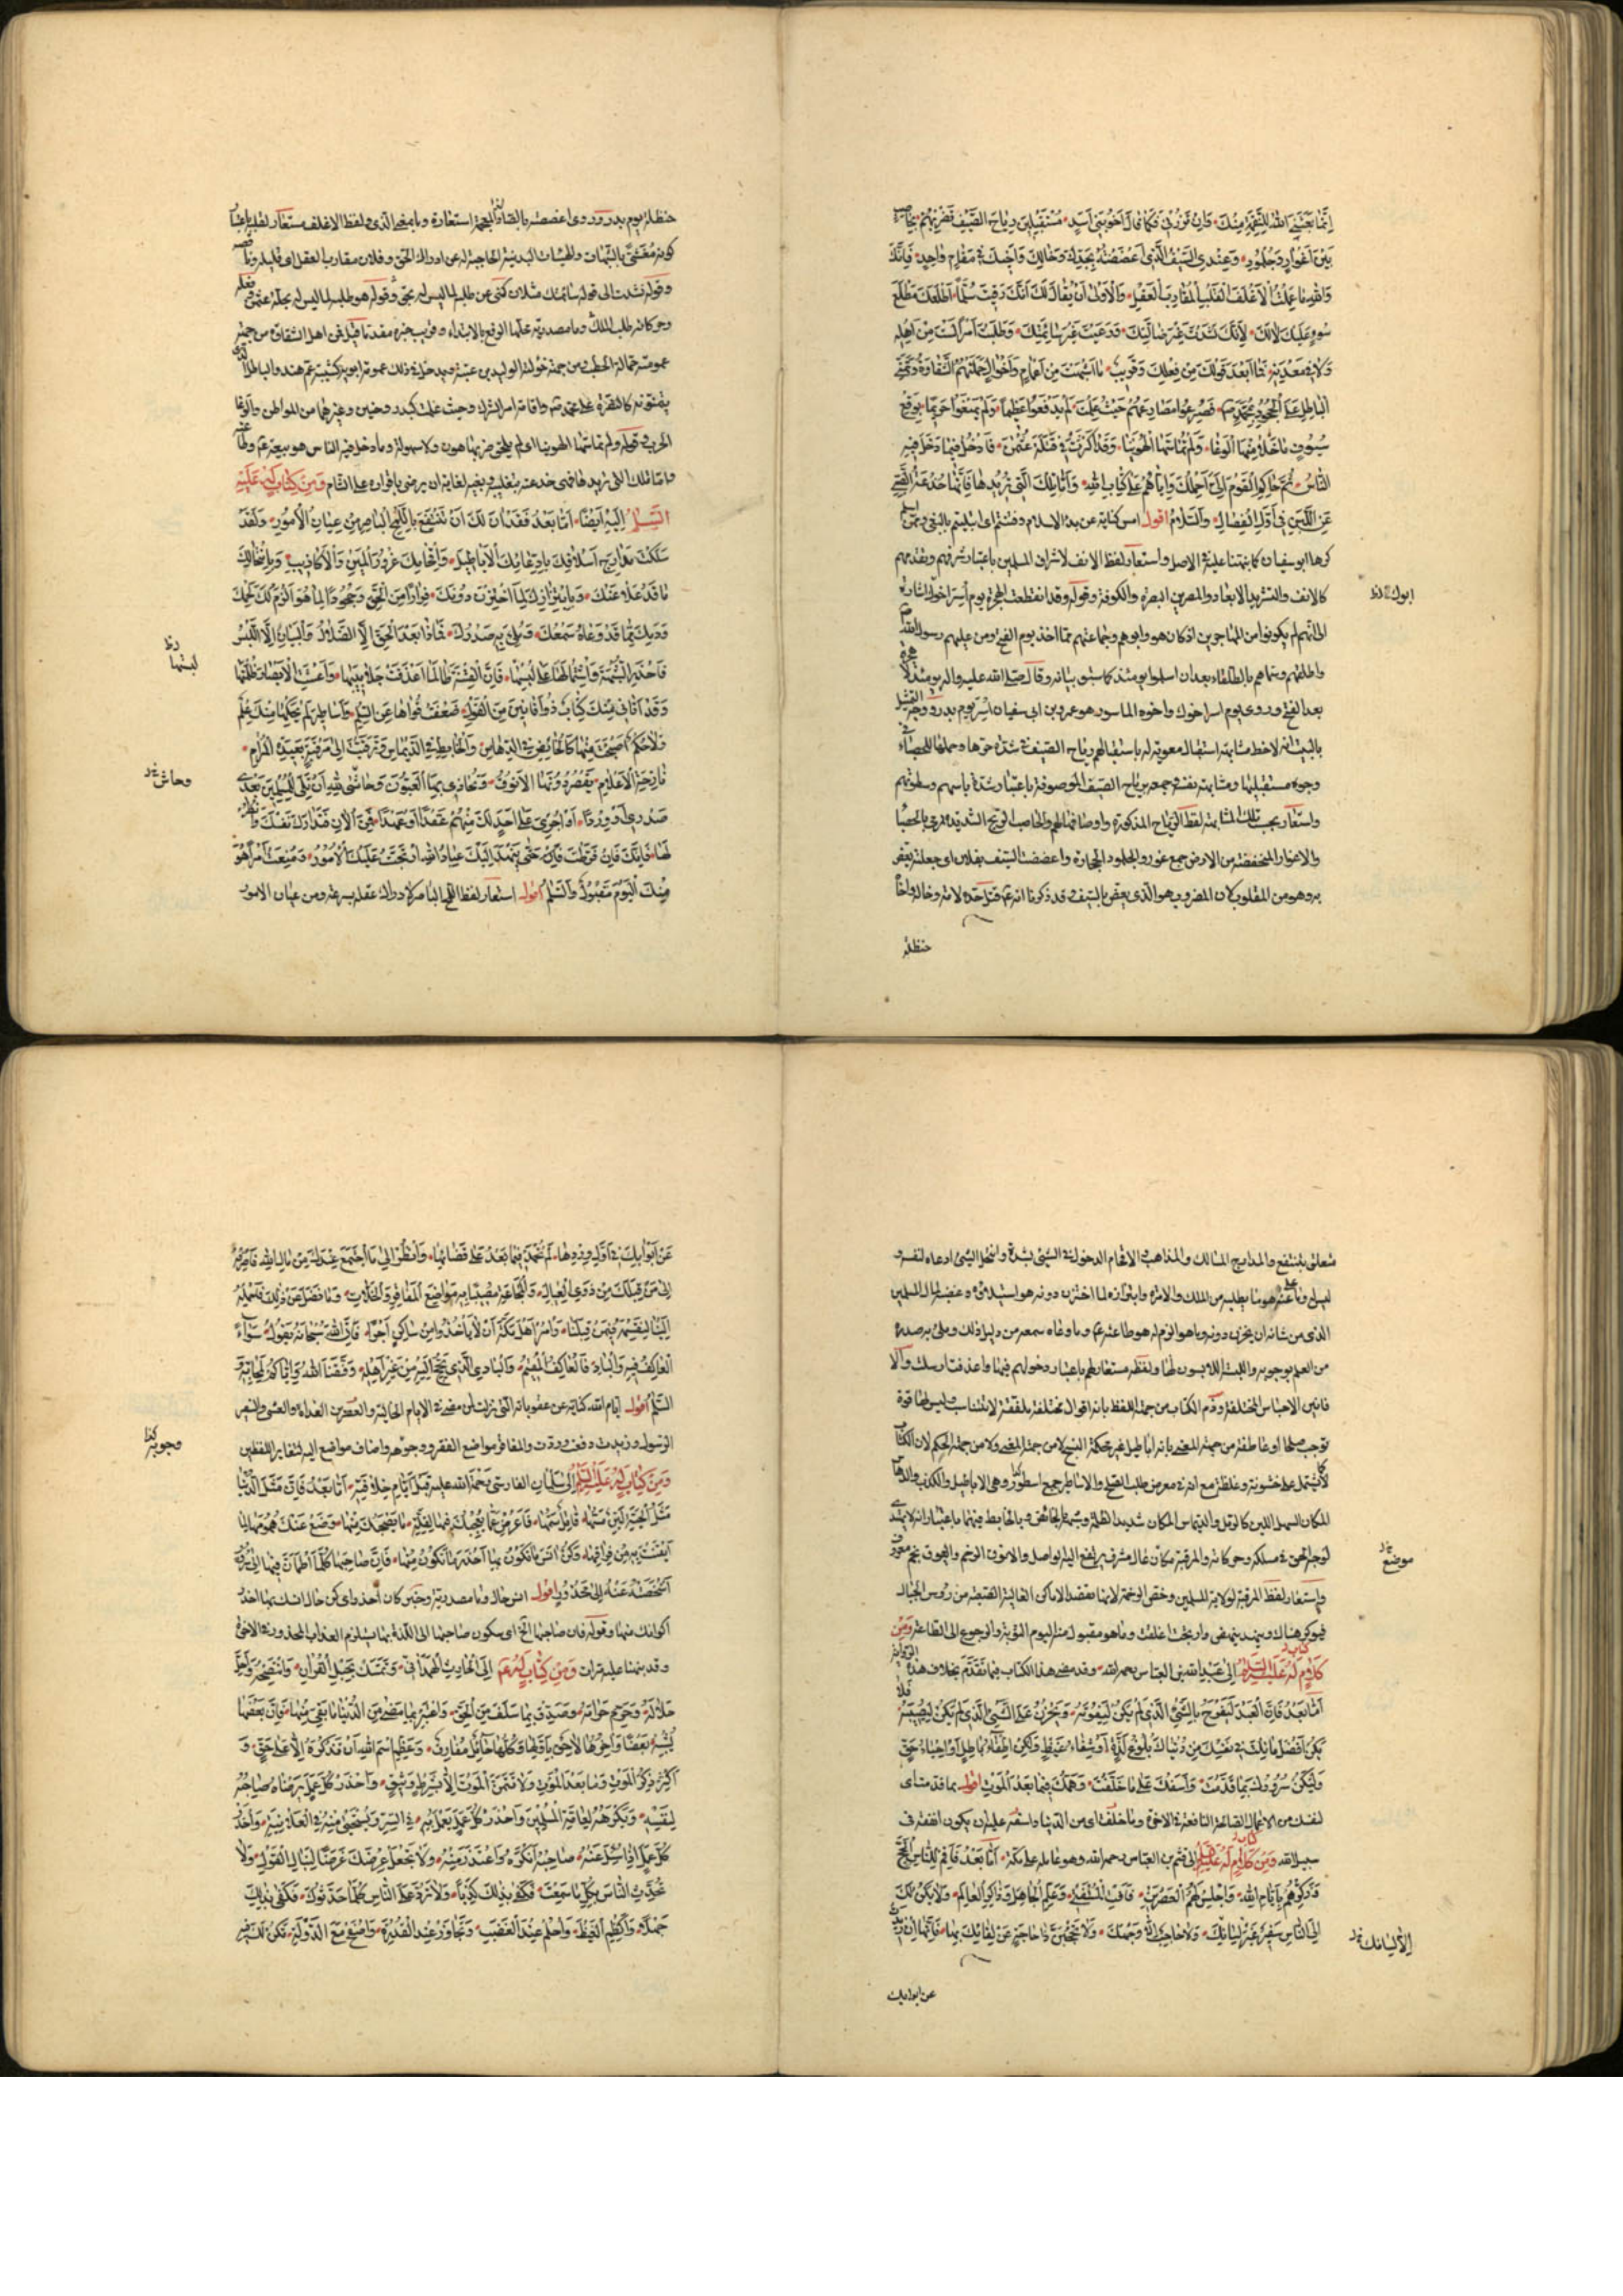 إنما بعثني الله للنقمة منك وإن تزرني فكما قال أخو بني أسد مستقبلين رياح الصيف تضربهم بحاصب
بين أغوار وجلمود وعندي السيف الذي أعضضته بجدك وخالك وأخيك في مقام واحد فإنك
والله ما علمت الأغلف القلب المقارب العقل والأولى أن يقال لك أنك رقيت سلما أطلعك مطلع
سوء عليك لا لك لأنك نشدت غير ضالتك ورعيت غير سائمتك وطلبت أمرا لست من أهله
ولا في معدنه فما أبعد قولك من فعلك وقريب ما أشبهت من أعمام وأخوال حملتهم الشقاوة وتمني
الباطل على الجحود بمحمد ص فصرعوا مصارعهم حيث علمت لم يدفعوا عظيما ولم يمنعوا حريما بوقع
سيوف ما خلا منها الوغا ولم تماشها الهوينا وقد أكثرت في قتلة عثمن فادخل فيما دخل فيه
الناس ثم حاكم القوم إلي أحملك وإياهم على كتاب الله وأما تلك التي تريدها فإنها خدعة الصبي
عن اللبن في أول الفصال والسلام أقول امس كناية عن بدء الاسلام وفتنتم اى ابتليتم بالبغي ومن اسلم
كرها ابو سفيان كما نبهنا عليه في الاصل واستعار لفظ الانف لاشراف المسلمين باعتبار شرفهم وتقدمهم
كالانف والتشريد الابعاد والمصرين البصرة والكوفة وقوله وقد انقطعت الهجرة يوم أسر اخوك اشارة
ابوك
الى انهم لم يكونوا من المهاجرين اذ كان هو وابوهم وجماعتهم مما اخذ يوم الفتح ومن عليهم رسول الله ص
واطلقهم وسماهم بالطلقاء بعد ان اسلموا يومئذ كما سبق بيانه وقال صلى الله عليه واله يومئذ لا هجرة
بعد الفتح وروى يوم اسر اخوك واخوه الماسور هو عمرو بن ابى سفيان اسر يوم بدر ووجه التمثيل
بالبيت انه لاحظ مشابهة استقبال معوية له باستقبالهم رياح الصيف في شدة حرها وحملها للحصباء في
وجوه مستقبليها ومشابهة نفسه وجمعه برياح الصيف الموصوفة باعتبار شدة باسهم وسطوتهم
واستعار بحسب تلك المشابهة لفظ الرياح المذكورة واوصافها لهم والحاصب الريح الشديدة ترمى بالحصباء
والاغوار المنخفضة من الارض جمع غور والجلمود الحجارة واعضضت السيف بفلان اى جعلته يعض
به وهو من المقلوب لان المضروب هو الذى يعض بالسيف وقد ذكرنا انه ع قتل جده لامه وخاله واخاه
حنظلة
حنظلة يوم بدر وروى اغصصته بالصاد والغين المعجمة استعارة وما بمعنى الذى ولفظ الاغلف مستعار لقلبه باعتبار
كونه مغشى بالشبهات والهيئات البدنية الحاجبة له عن ادراك الحق وفلان مقارب العقل اى قليله
وقوله نشدت الى قوله سائمتك مثلان كنى عن طلبه لما ليس له بحق وقوله هو طلبه لما ليس له
وحركاته طلب الملك وما مصدرية محلها الرفع بالابتداء وقريب خبره مقدما قيل في اهل الشقاوة من جهة
عمومته حمالة الحطب ومن جهة خؤلته الوليد بن عتبة
الحرب وقوله ولم تماشها الهوينا اى لم يلحق ضربها هون ولا سهولة وما دخل فيه الناس هو بيعته ع
واما تلك التى تريدها فهى خدعته ان يرضى باقراره على الشام ومن كتاب له عليه
السلام إليه أيضا أما بعد فقد آن لك أن تنتفع باللمح الباصر من عيان الأمور ولقد
سلكت مدارج أسلافك بادعائك الأباطيل وإقحامك غرور المين والأكاذيب وبانتحالك
ما قد علا عنك وبابتزازك لما اختزن دونك فرارا من الحق وجحودا لما هو ألزم لك من لحمك
ودمك مما قد وعاه سمعك وملئ به صدرك فماذا بعد الحق إلا الضلال والبيان إلا اللبس
فاحذر الشبهة واشتمالها على لبسها فإن الفتنة طالما أغدفت جلابيبها وأعشت الأبصار ظلمتها
لبستها
وقد أتاني منك كتاب ذو أفانين من القول ضعفت قواها عن السلم وأساطير لم يحكها منك علم
ولا حلم أصبحت منها كالخائض في الدهاس والخابط في الديماس وترقيت إلى مرقبة بعيدة المرام
نازحة الأعلام تقصر دونها الأنوق ويحاذى بها العيوق وحاشى لله أن تلي للمسلمين بعدي
وحاش
صدرا أو وردا أو أجري على أحد لك منهم عقدا أو عهدا فمن الآن فتدارك نفسك وانظر
لها فإنك فإن فرطت حتى ينهد إليك عباد الله أرتجت عليك الأمور ومنعت أمرا هو
منك اليوم مقبول والسلام أقول استعار لفظ اللمح الباصر لادراك عقله بسرعة ومن عيان الامور
متعلق بتنتفع والمدارج المسالك والمذاهب والاقحام الدخول في الشىء بشدة وانتحل الشىء ادعاه لنفسه
وما علا عنه هو ما يطلبه من الملك والامرة وابتزازه لما اختزن دونه هو استيلاؤه وغصبه لمال المسلمين
الذى من شانه ان يخزن دونه وما هو الزم له هو طاعته ع وما وعاه سمعه من دليل ذلك وملئ به صدره
من العلم بوجوبه ولفظه مستعار لهم باعتبار دخولهم فيها واغدفت ارسلت
فانين الاجناس المختلفة وذم الكتاب من جهة اللفظ بانه اقوال مختلفة ملفقة لا تتناسب ليس لها قوة
توجب صلحا او عاطفة ومن جهة المعنى بانه اباطيل غير محكمة النسج لا من جهة المعنى ولا من جهة الحكم لان الكتاب
المكان السهل اللين كالرمل والديماس المكان شديد الظلمة وشبهه بالخائض وبالخابط فيهما باعتبار انه لا يهتدى
لوجه الحق في مسلكه وحركاته والمرقبة مكان عال مشرف يرتفع اليه الواصل والانوق الرخم والعيوق نجم معروف
موضع
واستعار لفظ المرقبة لولاية المسلمين وخص الرخمة لانها تقصد الاماكن العالية الصعبة من رؤس الجبال
فتوكر هناك وينهد ينهض وارتجت اغلقت وما هو مقبول منه اليوم التوبة والرجوع الى الطاعة ومن
كلام له عليه السلام إلى عبد الله بن العباس رحمه الله وقد مضى هذا الكتاب فيما تقدم بخلاف هذه الرواية
كتاب
أما بعد فإن العبد ليفرح بالشيء الذي لم يكن ليفوته ويحزن على الشيء الذي لم يكن ليصيبه فلا
يكن أفضل ما نلت في نفسك من دنياك بلوغ لذة أو شفاء غيظ ولكن إطفاء باطل أو إحياء حق
وليكن سرورك بما قدمت وأسفك على ما خلفت وهمك فيما بعد الموت أقول بما قدمت اى
لنفسك من الاعمال الصالحة النافعة في الاخرة وما خلفت اى من الدنيا واسفه عليه ان يكون انفقه في
سبيل الله ومن كلام له عليه السلام إلى قثم بن العباس رحمه الله وهو عامله على مكة أما بعد فأقم للناس الحج
كتاب
وذكرهم بأيام الله واجلس لهم العصرين فأفت المستفتي وعلم الجاهل وذاكر العالم ولا يكن لك
إلى الناس سفير غير لسانك ولا حاجب إلا وجهك ولا تحجبن ذا حاجة عن لقائك بها فإنها إن ذيدت
إلا لسانك
عن ابوابك
عن أبوابك في أول وردها لم تحمد فيما بعد على قضائها وانظر إلى ما اجتمع عندك من مال الله فاصرفه
إلى من قبلك من ذوي العيال والمجاعة مصيبا به مواضع المفاقر والخلات وما فضل عن ذلك فاحمله
إلينا لنقسمه فيمن قبلنا وأمر أهل مكة أن لا يأخذوا من ساكن أجرا فإن الله سبحانه يقول سواء
العاكف فيه والباد فالعاكف المقيم والبادي الذي يحج إليه من غير أهله وفقنا الله وإياكم لمحابه و
السلم أقول أيام الله كناية عن عقوباته التى نزلت بمن مضى في الايام الخالية والعصرين الغداة والعشى
وذيدت دفعت وردت والمفاقر مواضع الفقر ووجوهه واضاف مواضع اليه لتغاير اللفظين
وجوبه
ومن كتاب له عليه السلام إلى سلمان الفارسي رحمة الله عليه قبل أيام خلافته أما بعد فإن مثل الدنيا
مثل الحية لين مسها قاتل سمها فأعرض عما يعجبك فيها لقلة ما يصحبك منها وضع عنك همومها لما
أيقنت به من فراقها وكن آنس ما تكون بها أحذر ما تكون منها فإن صاحبها كلما اطمأن فيها إلى سرور
أشخصته عنه إلى محذور أقول انس حال وما مصدرية وخبر كان أحذر اى كن حال انسك بها احذر
اكوانك منها وقوله فان صاحبها الخ اى سكون صاحبها الى اللذة بها يستلزم العذاب المحذور في الاخرة
وقد نبهنا عليه مرات ومن كتاب له ع إلى الحارث الهمداني وتمسك بحبل القرآن وانتصحه وأحل
حلاله وحرم حرامه وصدق بما سلف من الحق واعتبر بما مضى من الدنيا ما بقي منها فإن بعضها
يشبه بعضا وآخرها لاحق بأولها وكلها حائل مفارق وعظم اسم الله أن تذكره إلا على حق و
أكثر ذكر الموت وما بعد الموت ولا تتمن الموت إلا بشرط وثيق واحذر كل عمل يرضاه صاحبه
لنفسه ويكرهه لعامة المسلمين واحذر كل عمل يعمل به في السر ويستحيى منه في العلانية واحذر
كل عمل إذا سئل عنه صاحبه أنكره واعتذر منه ولا تجعل عرضك غرضا لنبال القول ولا
تحدث الناس بكل ما سمعت فكفى بذلك كذبا ولا ترد على الناس كلما حدثوك فكفى بذلك
جهلا واكظم الغيظ واحلم عند الغضب وتجاوز عند القدرة واصفح مع الدولة تكن لك